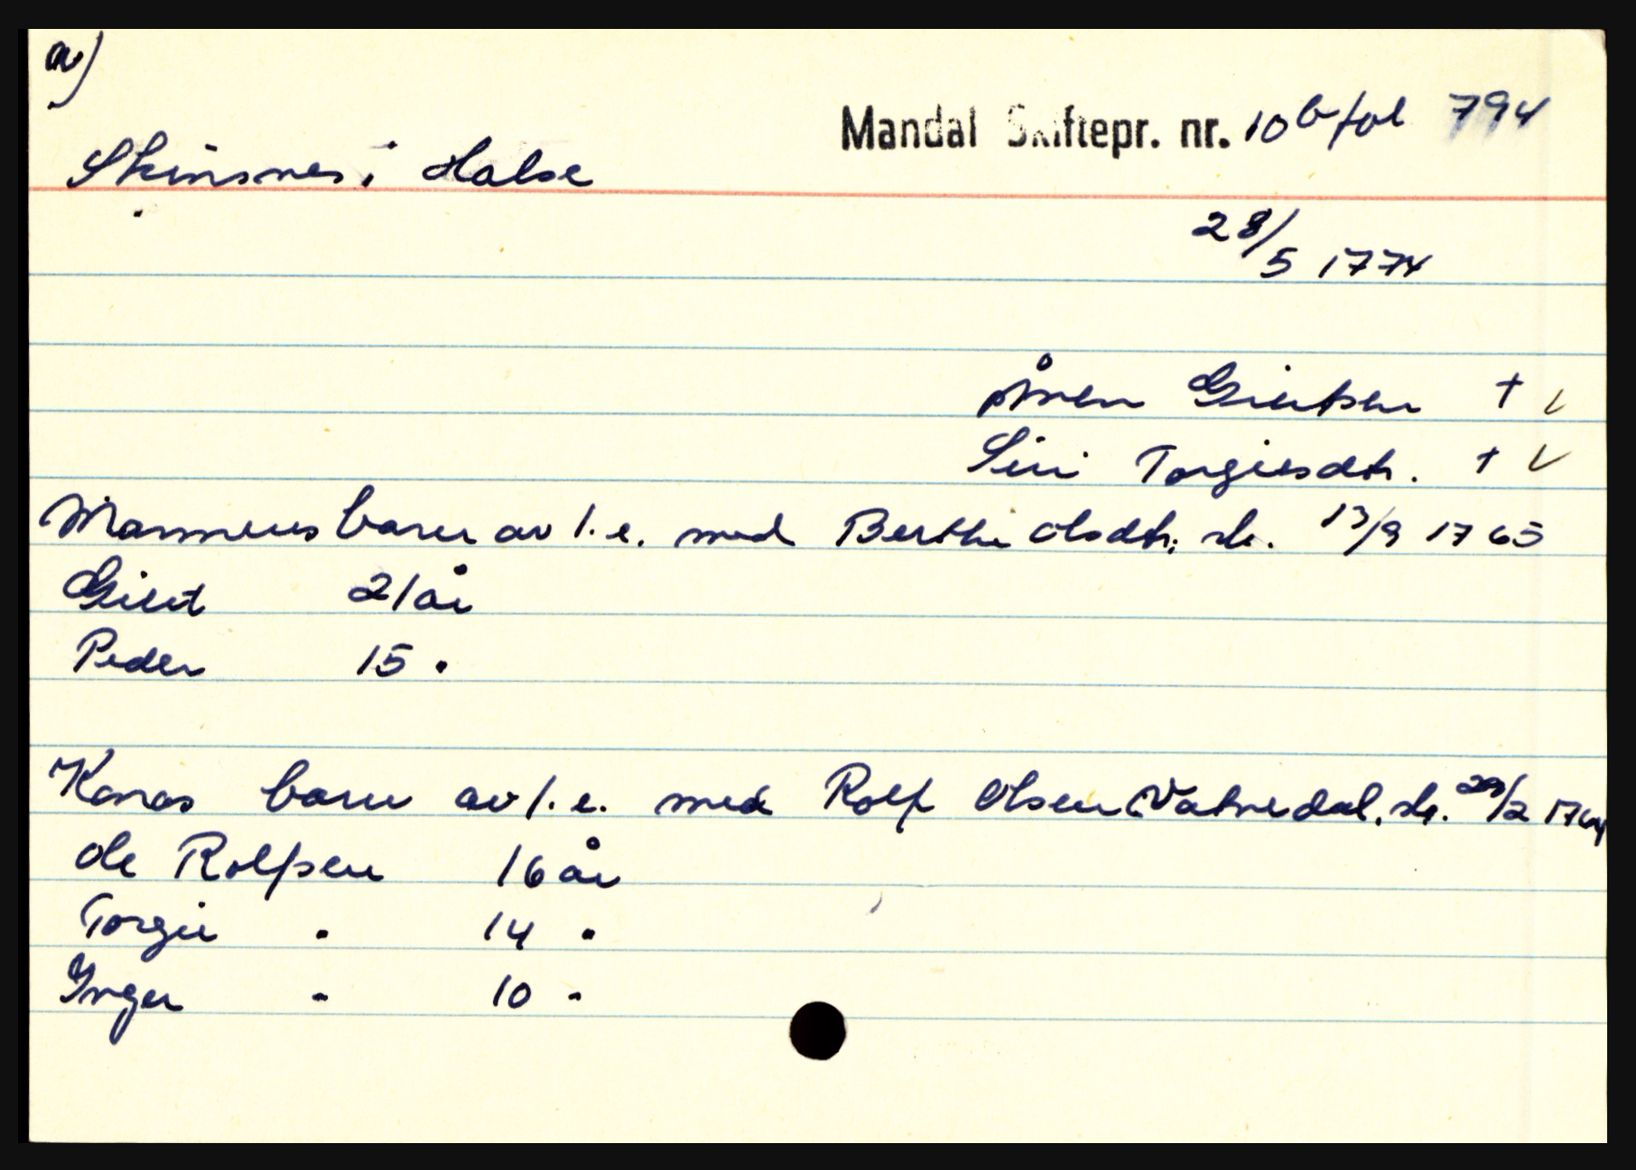 a)
Mandal Skiftepr. nr. 10 b fol 794
Skinsnes i Halse
28/5 1774
Ånen Giertsen + v
Siri Torgiesdtr. + v
Mannens barn av 1. e. med Berthe Olsdtr. sk. 13/9 1765
Giert 21 år
Peder 15 "
Konas barn av 1. e. med Rolf Olsen Vatnedal, sk. 29/2 1764
Ole Rolfsen 16 år
Torgie " 14 "
Inger " 10 "